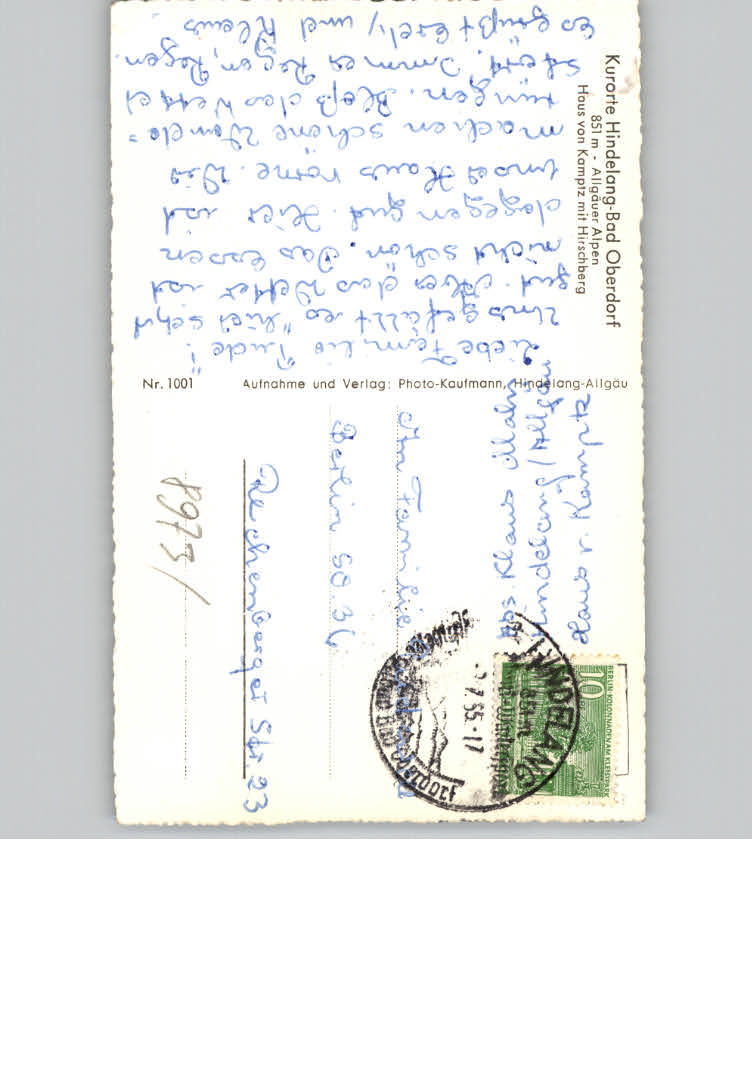 Kurorte Hindelang-Bad Oberdorf
851 m - Allgäuer Alpen
Haus von Kamptz mit Hirschberg
Liebe Familie "Jude"!
Uns gefällt es hier sehr
gut. Aber das Wetter ist
nicht schön. Das Essen
dagegen gut. Hier ist
unser Haus vorne. Wir
machen schöne Wande=
rungen. Bloß das Wetter
stört. Immer Regen, Regen.
Es grüßt Evely und Klaus
Nr. 1001
Aufnahme und Verlag: Photo-Kaufmann, Hindelang-Allgäu
Abs Klaus Mahn
Hindelang/Allgäu
Haus v. Kamptz
An Familie
Berlin SO 36
Reichenberger Str. 23
8973/
HINDELANG
851 m
-2.7.55.-17
Bad Oberdorf
10
BERLIN·KOLONNADEN AM KLEISTPARK